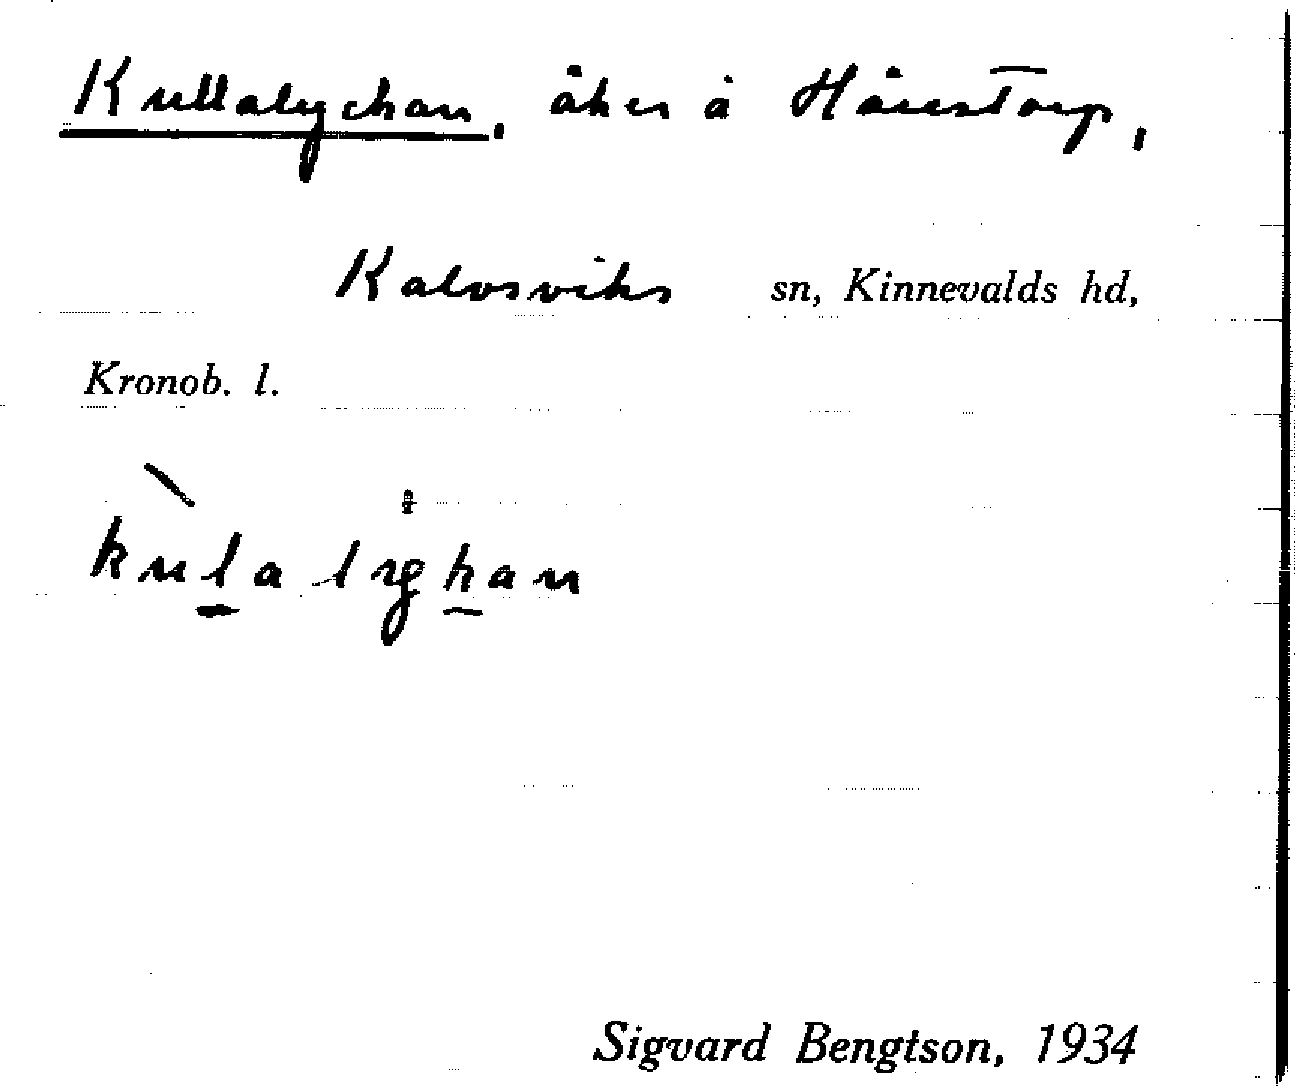 Kullalyckan, åker å Hårestorp,
Kalvsviks sn, Kinnevalds hd,
Kronob. l.
kulalykan
Sigvard Bengtson, 1934